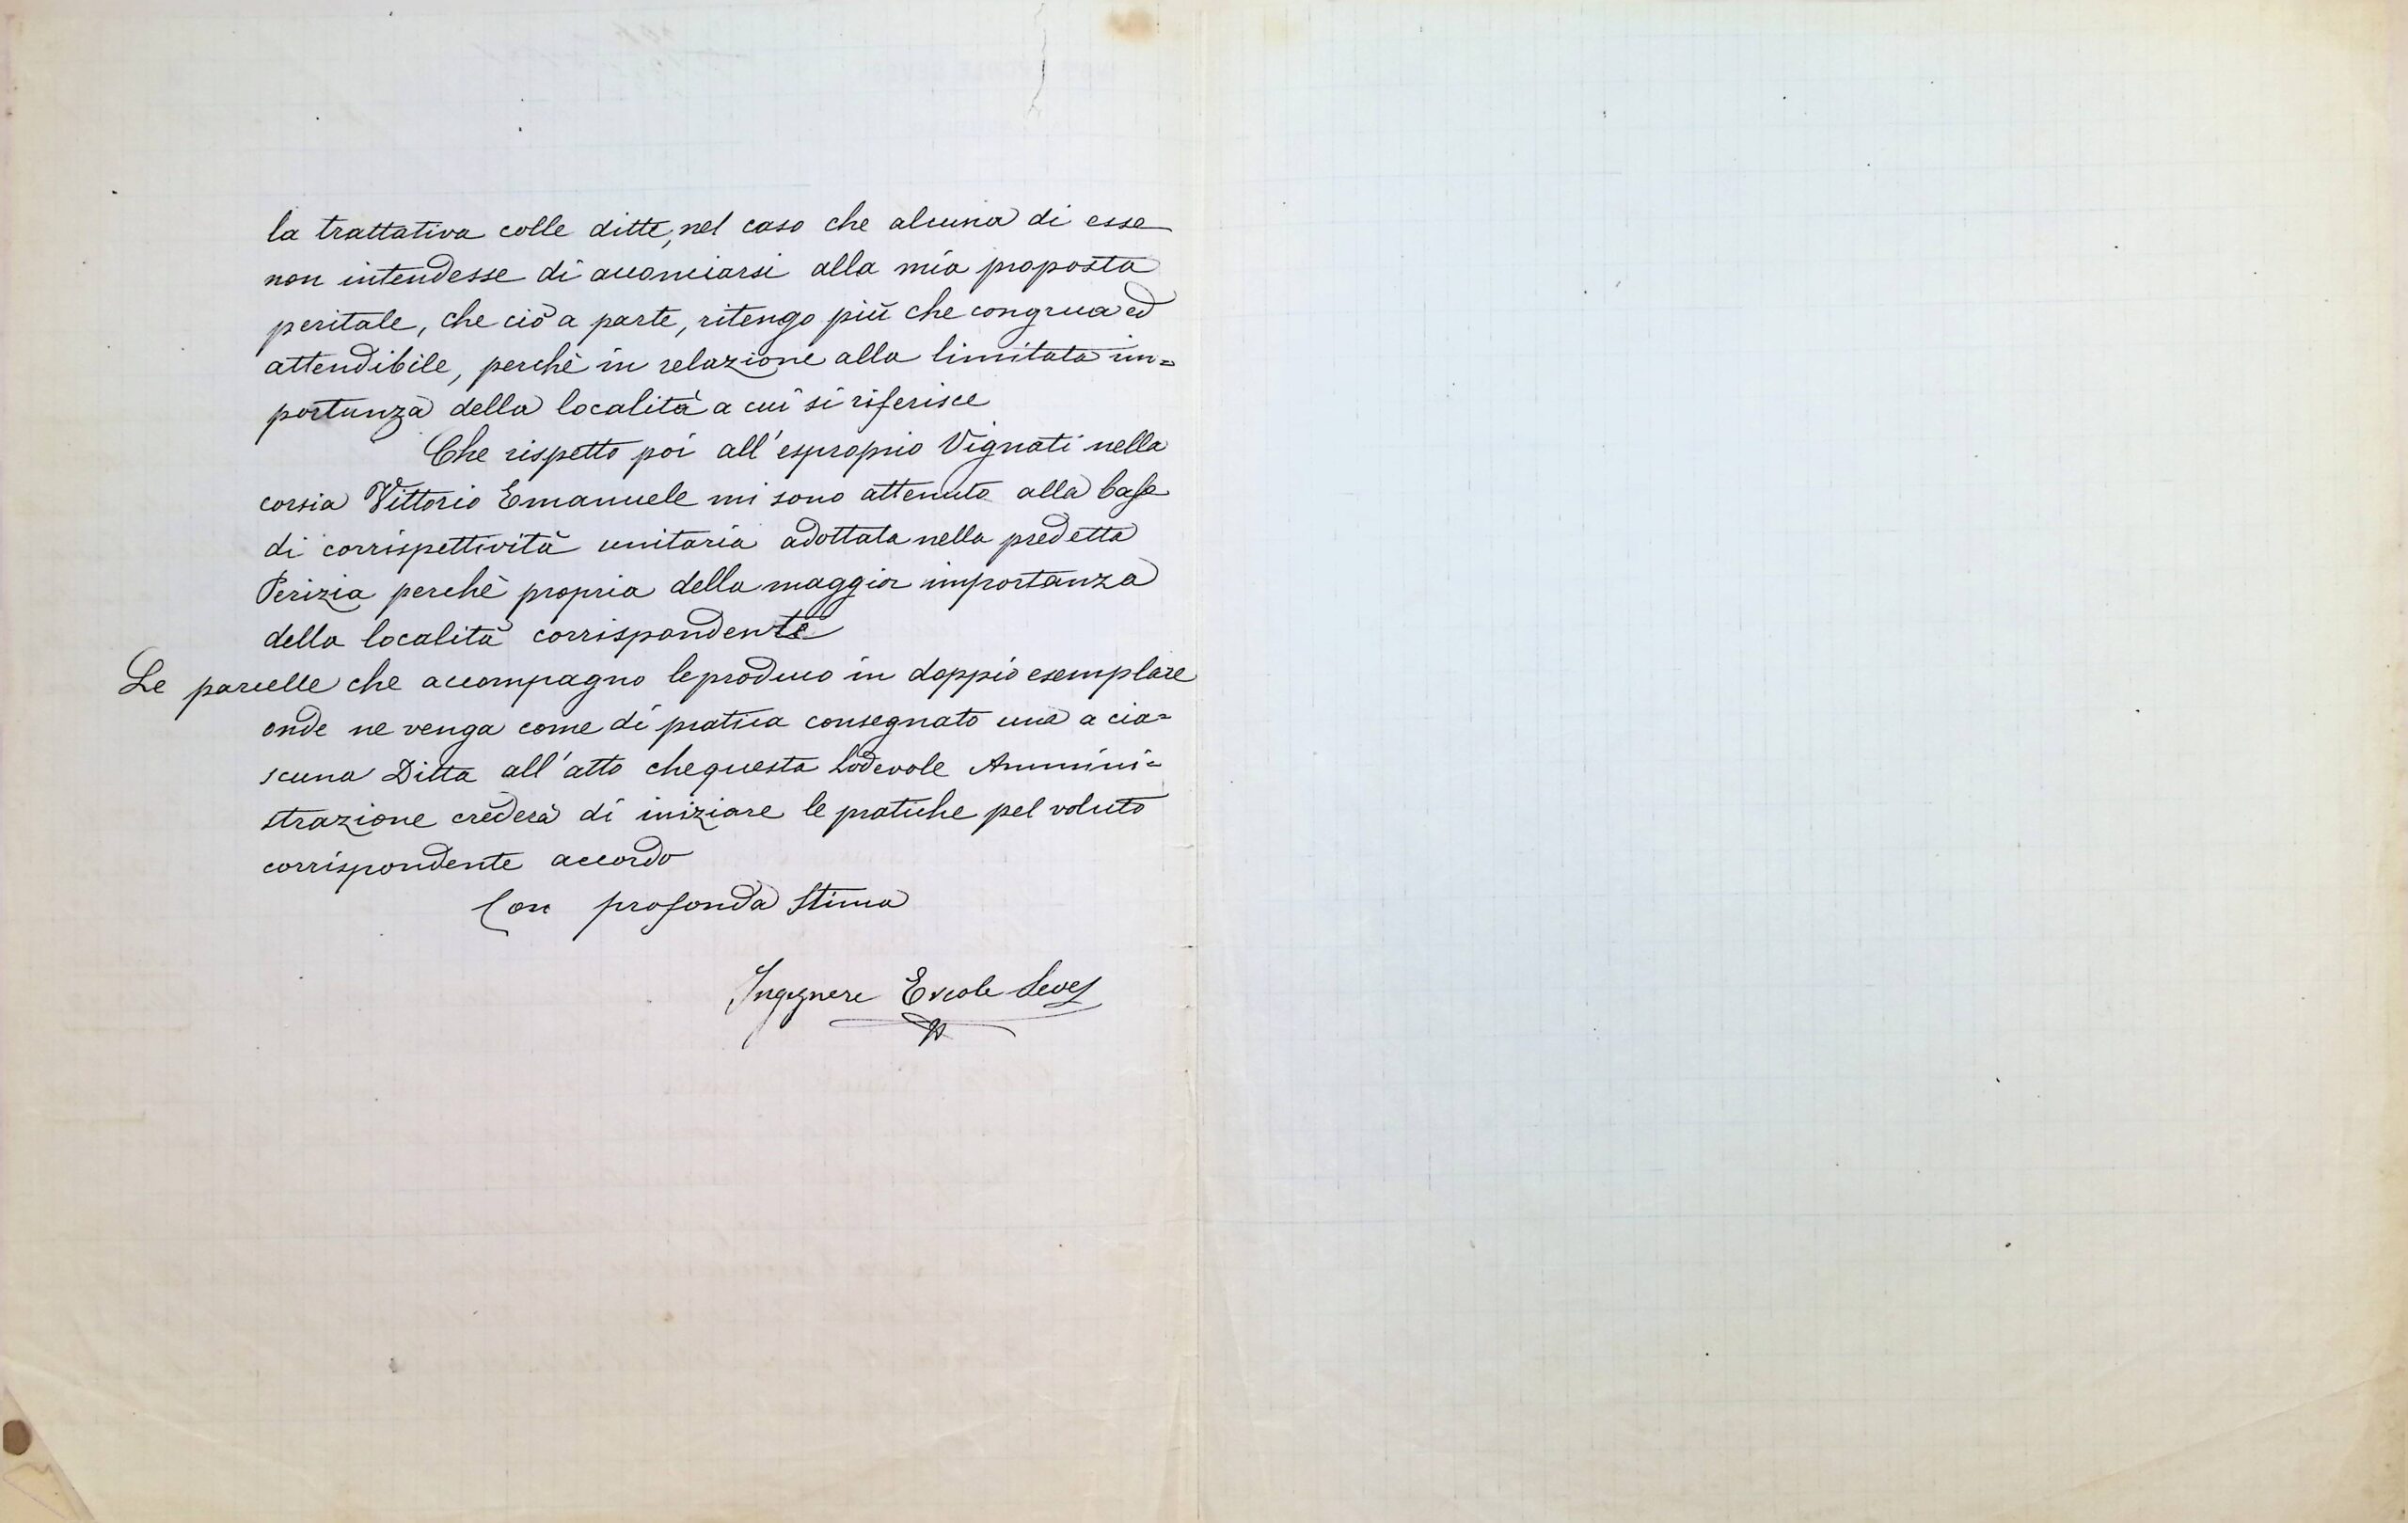 la trattativa colle ditte, nel caso che alcuna di esse
non intendesse di acconciarsi alla mia proposta
peritale, che ciò a parte, ritengo più che congrua ed
attendibile, perchè in relazione alla limitata im=
portanza della località a cui si riferisce
Che rispetto poi all'esproprio Vignati nella
corsia Vittorio Emanuele mi sono attenuto alla base
di corrispettività unitaria adottata nella predetta
Perizia perchè propria della maggior importanza
della località corrispondente
Le parcelle che accompagno le produco in doppio esemplare
onde ne venga come di pratica consegnato una a cia=
scuna Ditta all'atto che questa Lodevole Ammini=
strazione crederà di iniziare le pratiche pel voluto
corrispondente accordo
Con profonda stima
Ingegnere Ercole